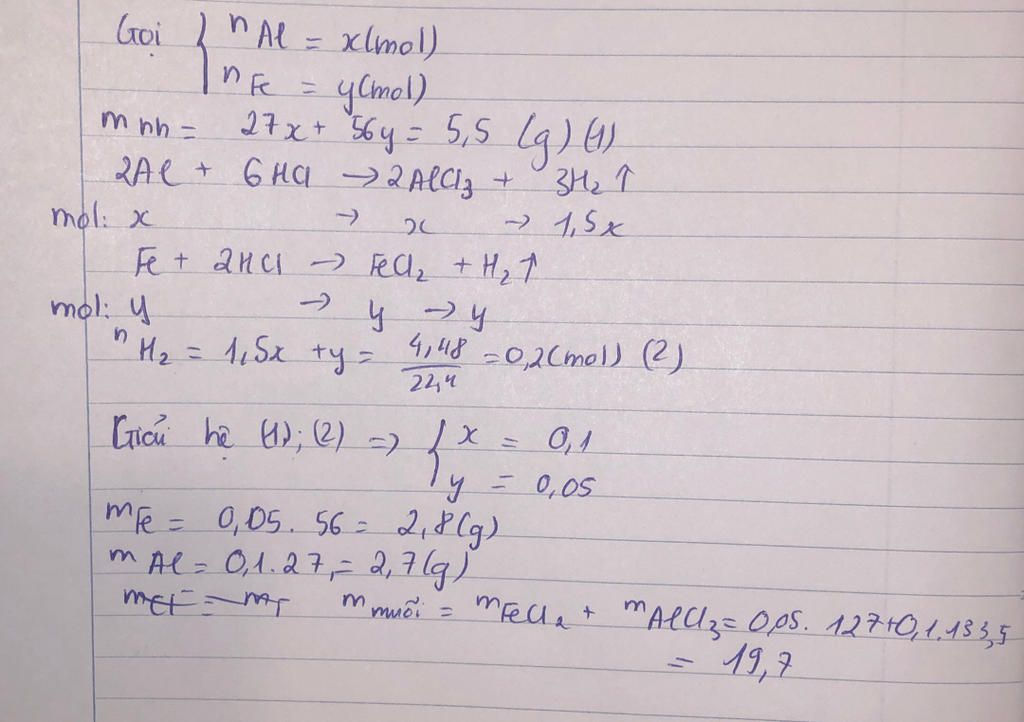 Gọi { nAl = x(mol)
nFe = y(mol)
mhh = 27x + 56y = 5,5 (g) (1)
2Al + 6HCl → 2AlCl₃ + 3H₂↑
mol: x → x → 1,5x
Fe + 2HCl → FeCl₂ + H₂↑
mol: y → y → y
nH₂ = 1,5x + y = 4,48/22,4 = 0,2(mol) (2)
Giải hệ (1); (2) => { x = 0,1
y = 0,05
mFe = 0,05. 56 = 2,8(g)
mAl = 0,1.27 = 2,7(g)
m muối = mFeCl₂ + mAlCl₃ = 0,05. 127+0,1.133,5
= 19,7